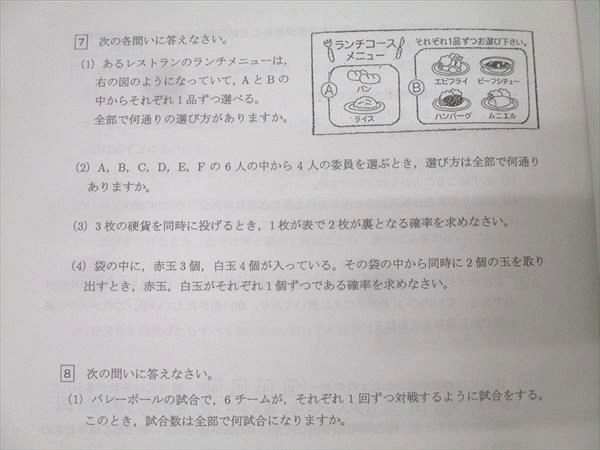 7 次の各問いに答えなさい。
(1) あるレストランのランチメニューは,
右の図のようになっていて, AとBの
中からそれぞれ1品ずつ選べる。
全部で何通りの選び方がありますか。
ランチコース
メニュー
それぞれ1品ずつお選び下さい。
A
パン
ライス
B
エビフライ
ビーフシチュー
ハンバーグ
ムニエル
(2) A, B, C, D, E, F の 6 人の中から 4 人の委員を選ぶとき, 選び方は全部で何通り
ありますか。
(3) 3 枚の硬貨を同時に投げるとき, 1 枚が表で 2 枚が裏となる確率を求めなさい。
(4) 袋の中に, 赤玉 3 個, 白玉 4 個が入っている。その袋の中から同時に 2 個の玉を取り
出すとき, 赤玉, 白玉がそれぞれ 1 個ずつである確率を求めなさい。
8 次の問いに答えなさい。
(1) バレーボールの試合で, 6 チームが, それぞれ 1 回ずつ対戦するように試合をする。
このとき, 試合数は全部で何試合になりますか。